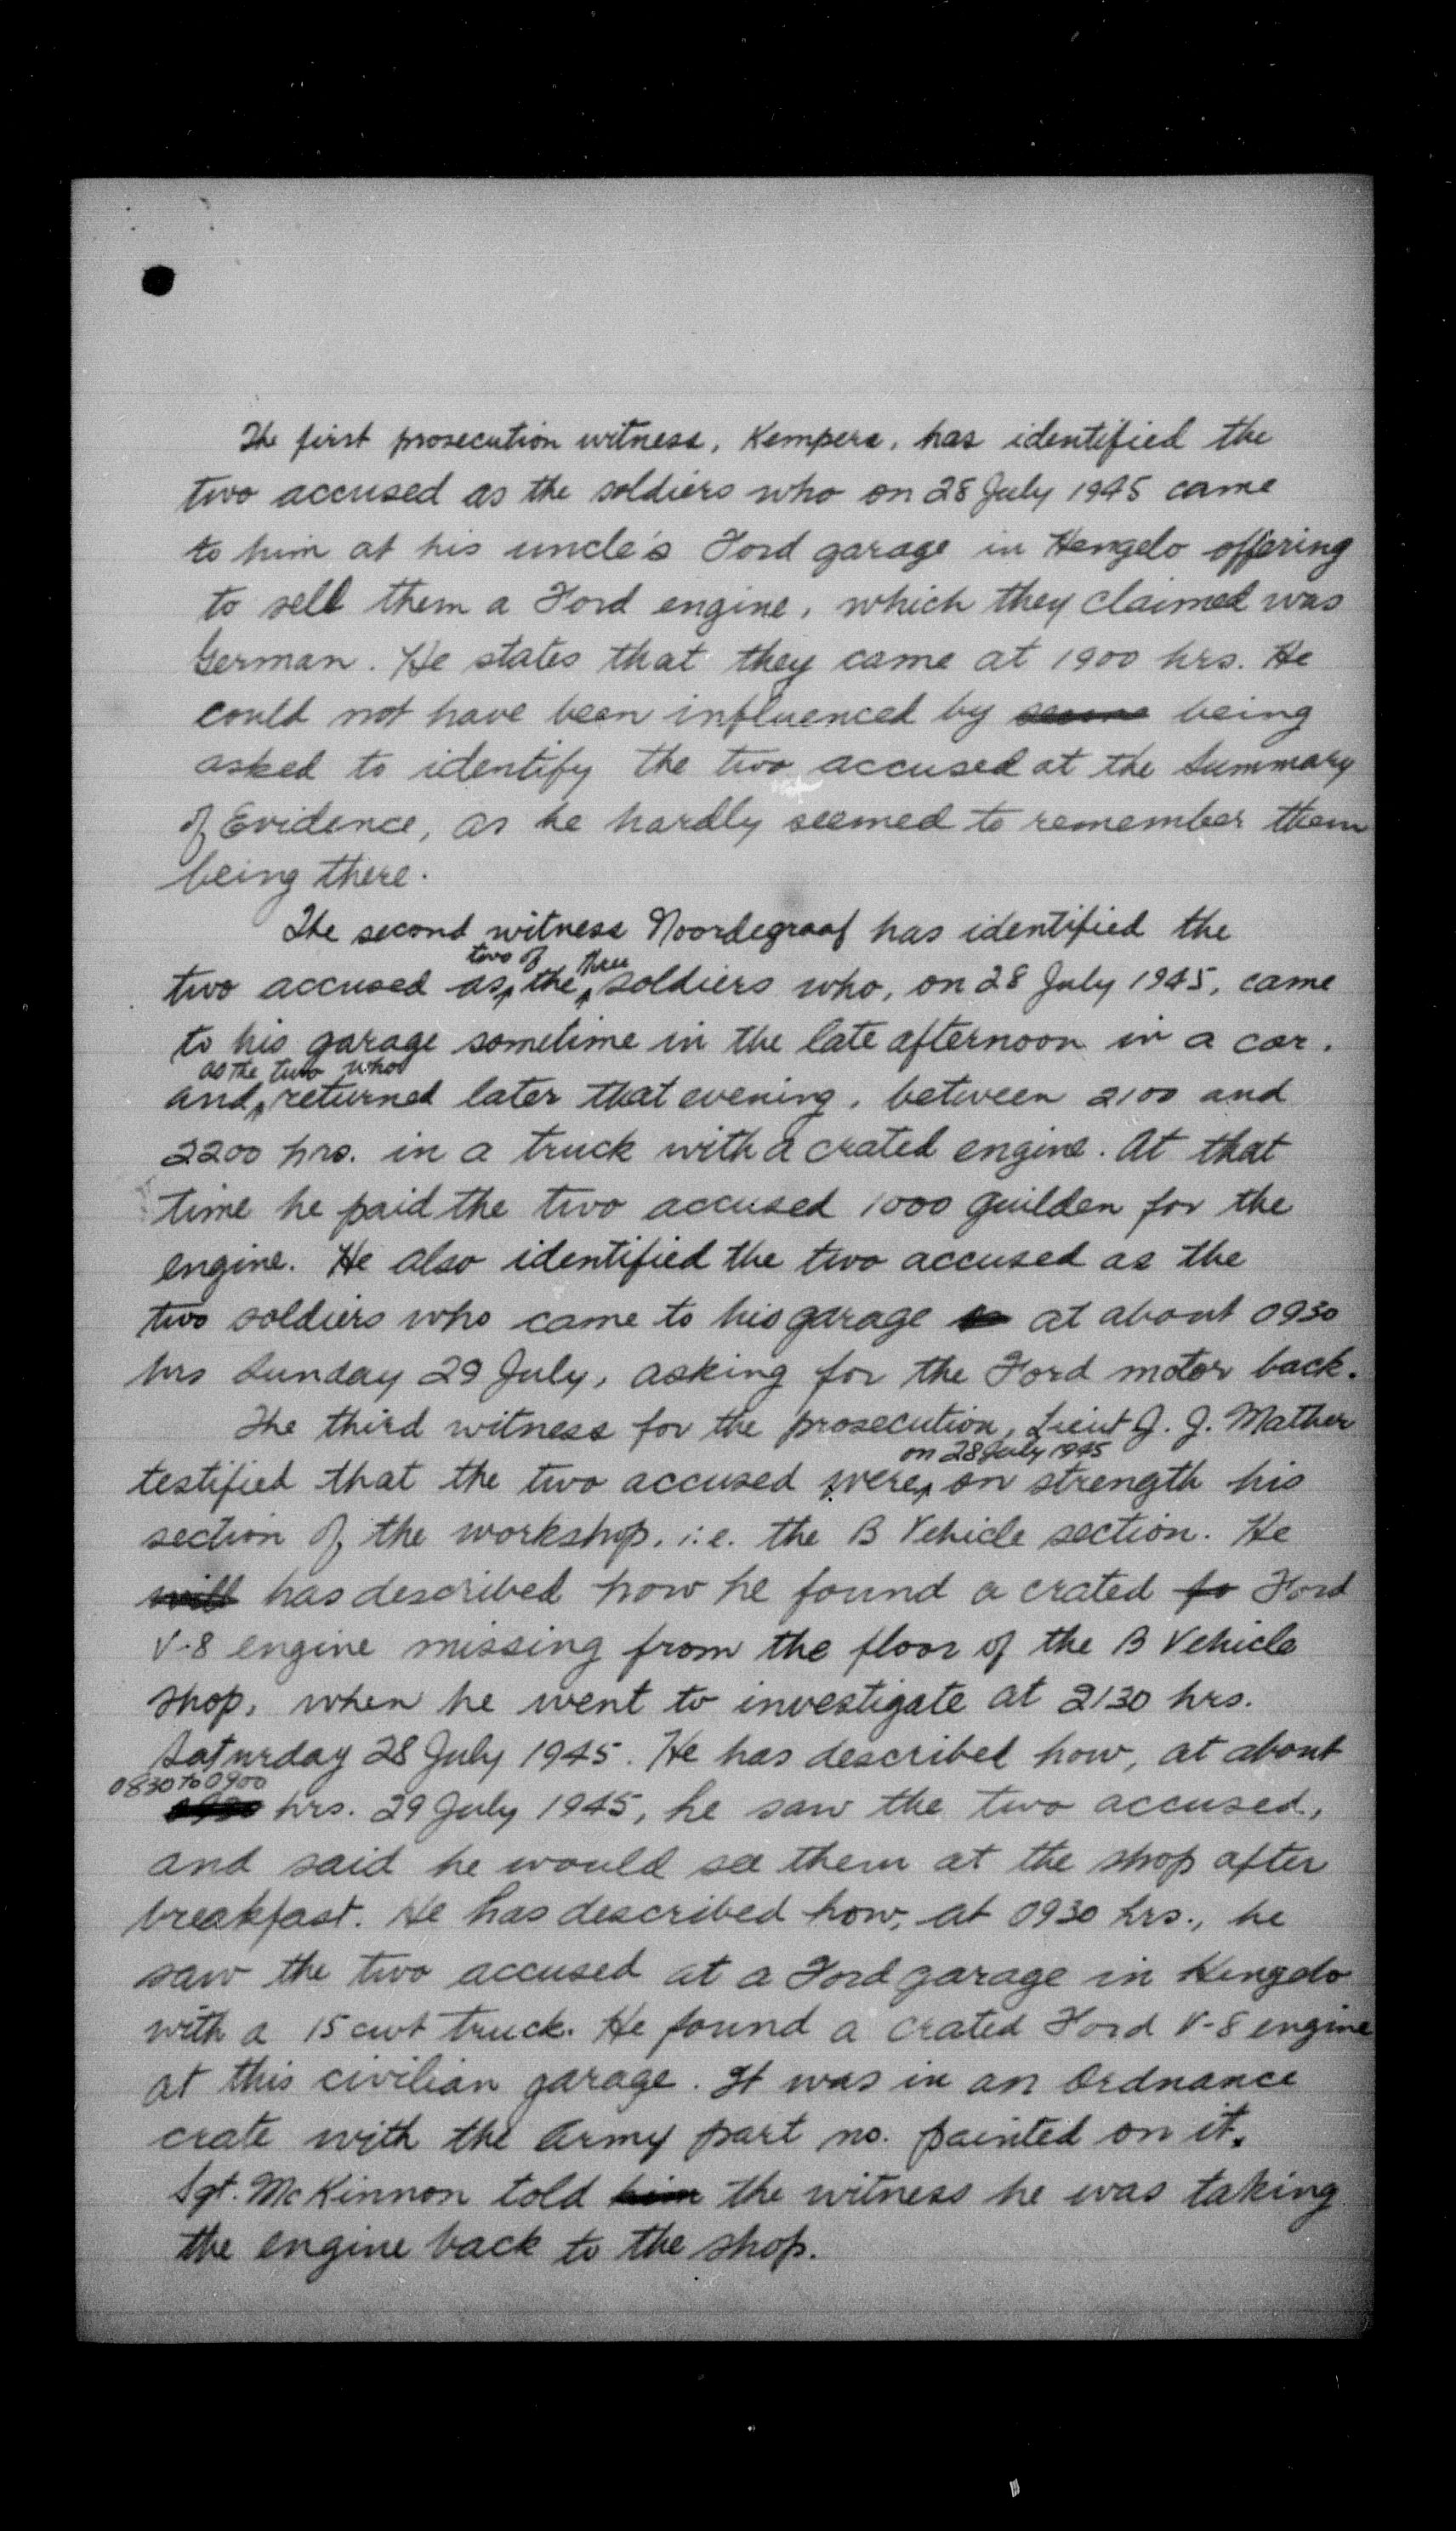 The first prosecution witness, Kempers, has identified the
two accused as the soldiers who on 28 July 1945 came
to him at his uncle's Ford garage in Hengelo offering
to sell them a Ford engine, which they claimed was
German. He states that they came at 1900 hrs. He
could not have been influenced by being
asked to identify the two accused at the Summary
of Evidence, as he hardly seemed to remember them
being there.
The second witness Noordegraaf has identified the
two of three
two accused as the soldiers who, on 28 July 1945, came
to his garage sometime in the late afternoon in a car.
as the two who
and returned later that evening, between 2100 and
2200 hrs. in a truck with a crated engine. At that
time he paid the two accused 1000 guilden for the
engine. He also identified the two accused as the
two soldiers who came to his garage at about 0930
hrs Sunday 29 July, asking for the Ford motor back.
The third witness for the prosecution, Lieut J. J. Mather
on 28 July 1945
testified that the two accused were on strength his
section of the workshop, i.e. the B Vehicle section. He
will has described how he found a crated fo Ford
V-8 engine missing from the floor of the B Vehicle
shop, when he went to investigate at 2130 hrs.
Saturday 28 July 1945. He has described how, at about
0830 to 0900
hrs. 29 July 1945, he saw the two accused,
and said he would see them at the shop after
breakfast. He has described how, at 0930 hrs., he
saw the two accused at a Ford garage in Hengelo
with a 15 cwt truck. He found a crated Ford V-8 engine
at this civilian garage. It was in an Ordnance
crate with the Army part no. painted on it.
Sgt. McKinnon told him the witness he was taking
the engine back to the shop.